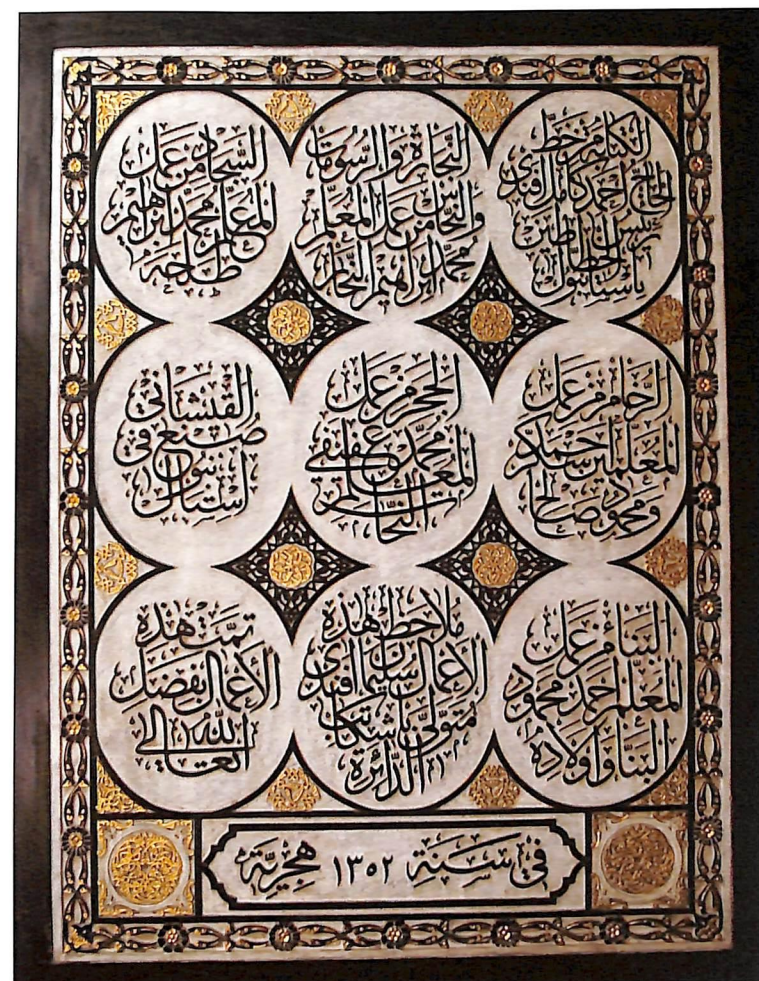 الكتابة من خط
الحاج احمد كامل افندي
رئيس الخطاطين
باستانبول
النجارة والرسومات
والنحاس من عمل المعلم
محمد ابراهيم النجار
السجاد من عمل
المعلم محمد ابراهيم
طلاحه
الرخام من عمل
المعلمين سيد احمد بكر
ومحمود صالح
الحجر من عمل
محمد عفيفى
المعلم النحات
القيشاني
صنع في
استانبول
البناء من عمل
المعلم احمد محمود
البنا واولاده
ملاحظ هذه
الأعمال سليمان افندي
متولي باشكاتب
الدائرة
تمت هذه
الأعمال بفضل
الله تعالى
في سنة ١٣٥٢ هجرية